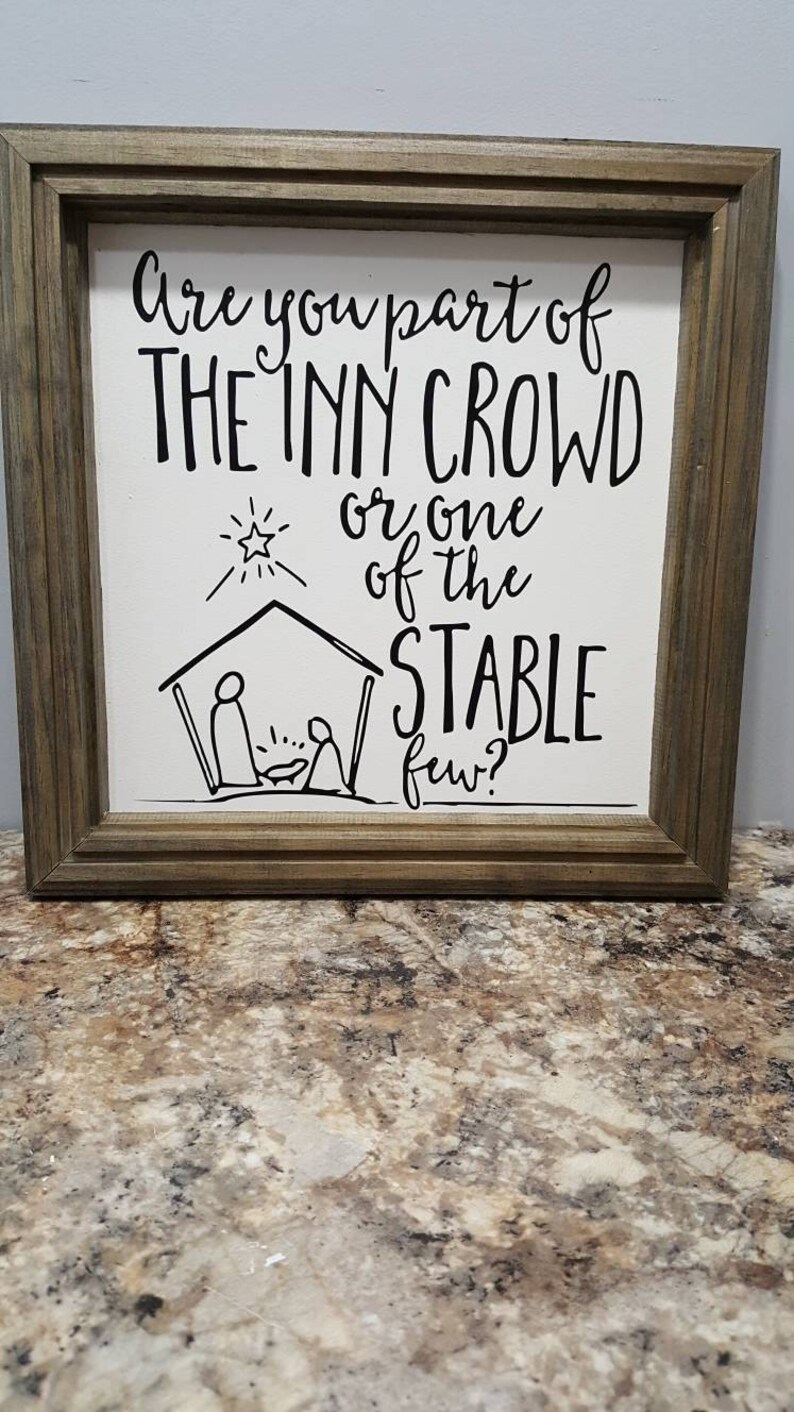 Are you part of
THE INN CROWD
or one
of the
STABLE
few?